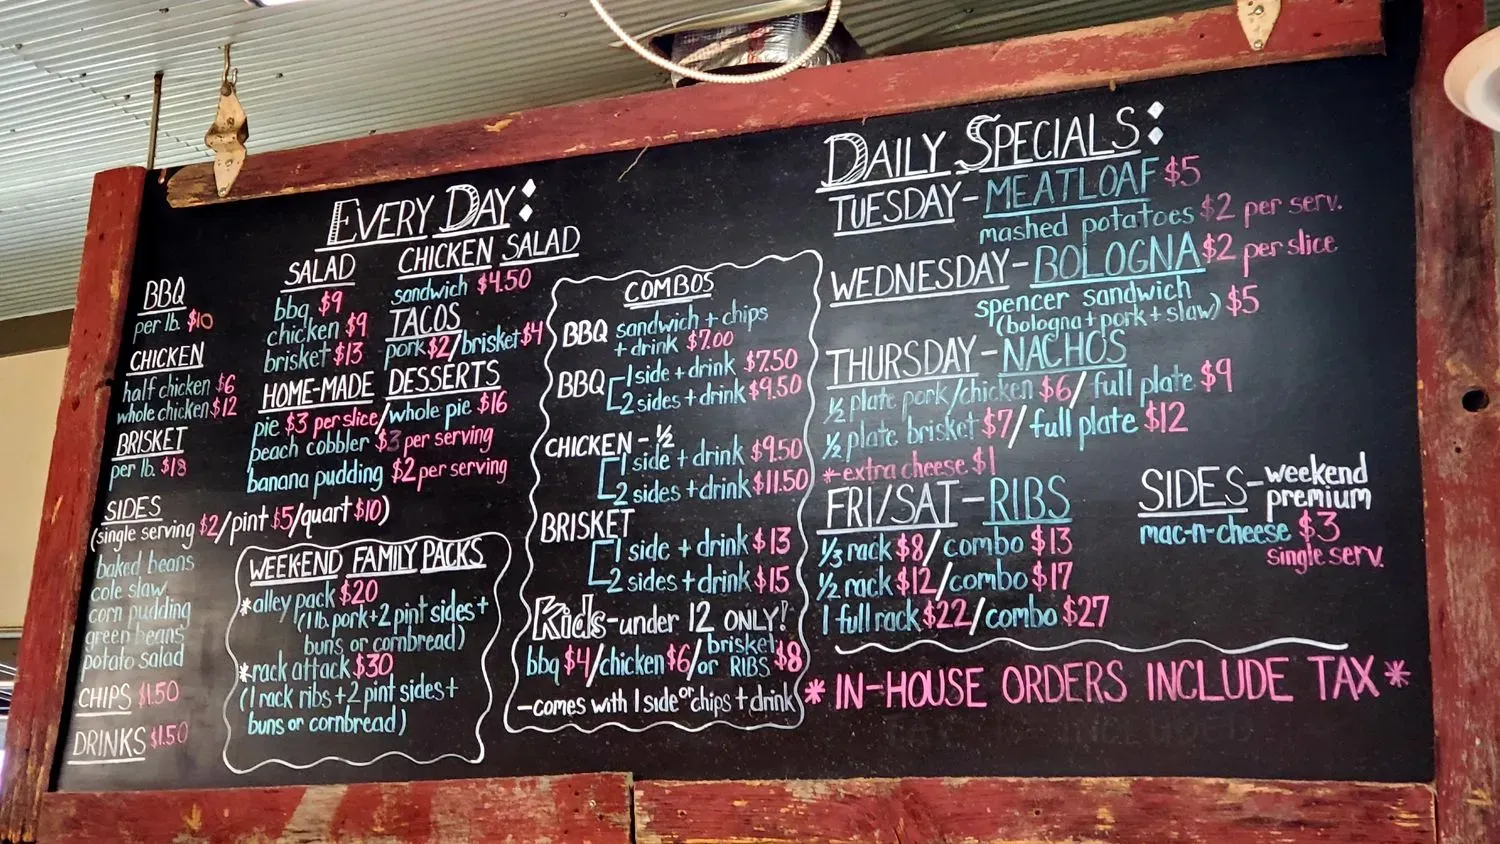 EVERY DAY:
BBQ
per lb. $10
CHICKEN
half chicken $6
whole chicken $12
BRISKET
per lb. $18
SIDES
(single serving $2/pint $5/quart $10)
baked beans
cole slaw
corn pudding
green beans
potato salad
CHIPS $1.50
DRINKS $1.50
SALAD
bbq $9
chicken $9
brisket $13
CHICKEN SALAD
sandwich $4.50
TACOS
pork $2/brisket $4
HOME-MADE DESSERTS
pie $3 per slice/whole pie $16
peach cobbler $3 per serving
banana pudding $2 per serving
WEEKEND FAMILY PACKS
*alley pack $20
(1 lb. pork + 2 pint sides +
buns or cornbread)
*rack attack $30
(1 rack ribs + 2 pint sides +
buns or cornbread)
COMBOS
BBQ sandwich + chips
+ drink $7.00
BBQ 1 side + drink $7.50
2 sides + drink $9.50
CHICKEN - 1/2
1 side + drink $9.50
2 sides + drink $11.50
BRISKET
1 side + drink $13
2 sides + drink $15
Kids - under 12 ONLY!
bbq $4/chicken $6/brisket or RIBS $8
- comes with 1 side or chips + drink
DAILY SPECIALS:
TUESDAY - MEATLOAF $5
mashed potatoes $2 per serv.
WEDNESDAY - BOLOGNA $2 per slice
spencer sandwich
(bologna + pork + slaw) $5
THURSDAY - NACHOS
1/2 plate pork/chicken $6/full plate $9
1/2 plate brisket $7/full plate $12
*extra cheese $1
FRI/SAT - RIBS
1/3 rack $8/combo $13
1/2 rack $12/combo $17
1 full rack $22/combo $27
SIDES - weekend
premium
mac-n-cheese $3
single serv.
*IN-HOUSE ORDERS INCLUDE TAX*